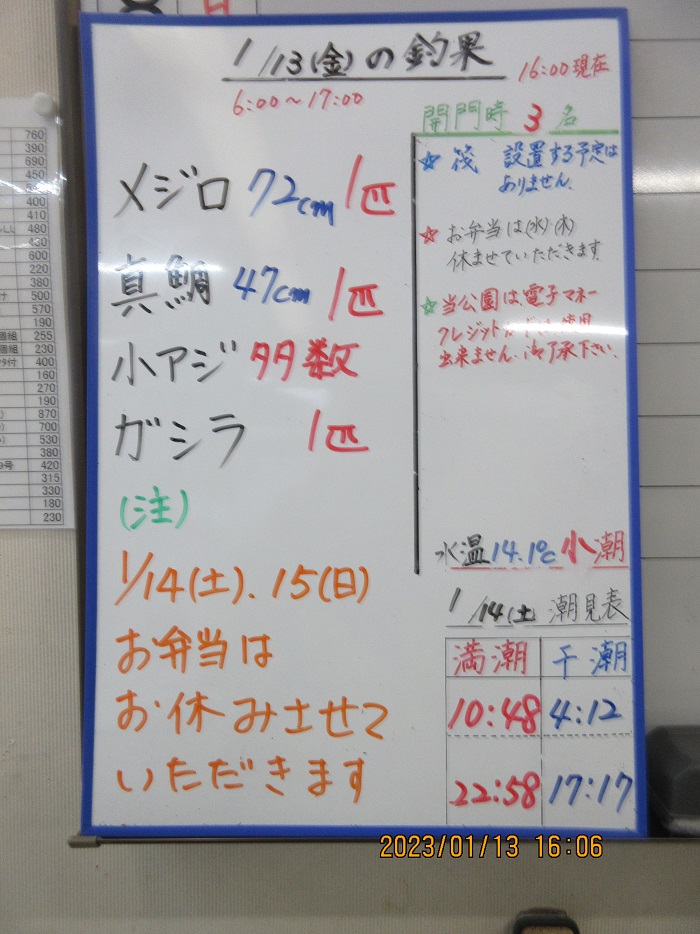 1/13(金)の釣果
16:00現在
6:00～17:00
開門時 3 名
メジロ 72cm 1匹
真鯛 47cm 1匹
小アジ 多数
ガシラ 1匹
(注)
1/14(土).15(日)
お弁当は
お休みさせて
いただきます
☆ 筏 設置する予定は
ありません.
☆ お弁当は(水)(木)
休ませていただきます
☆ 当公園は、電子マネー
クレジットカード
出来ません.御了承下さい.
水温14.1℃ 小潮
1/14(土) 潮見表
満潮 干潮
10:48 4:12
22:58 17:17
760
390
690
400
410
480
600
220
380
500
570
190
255
230
400
160
270
190
870
700
530
380
420
315
330
180
230
2023/01/13 16:06